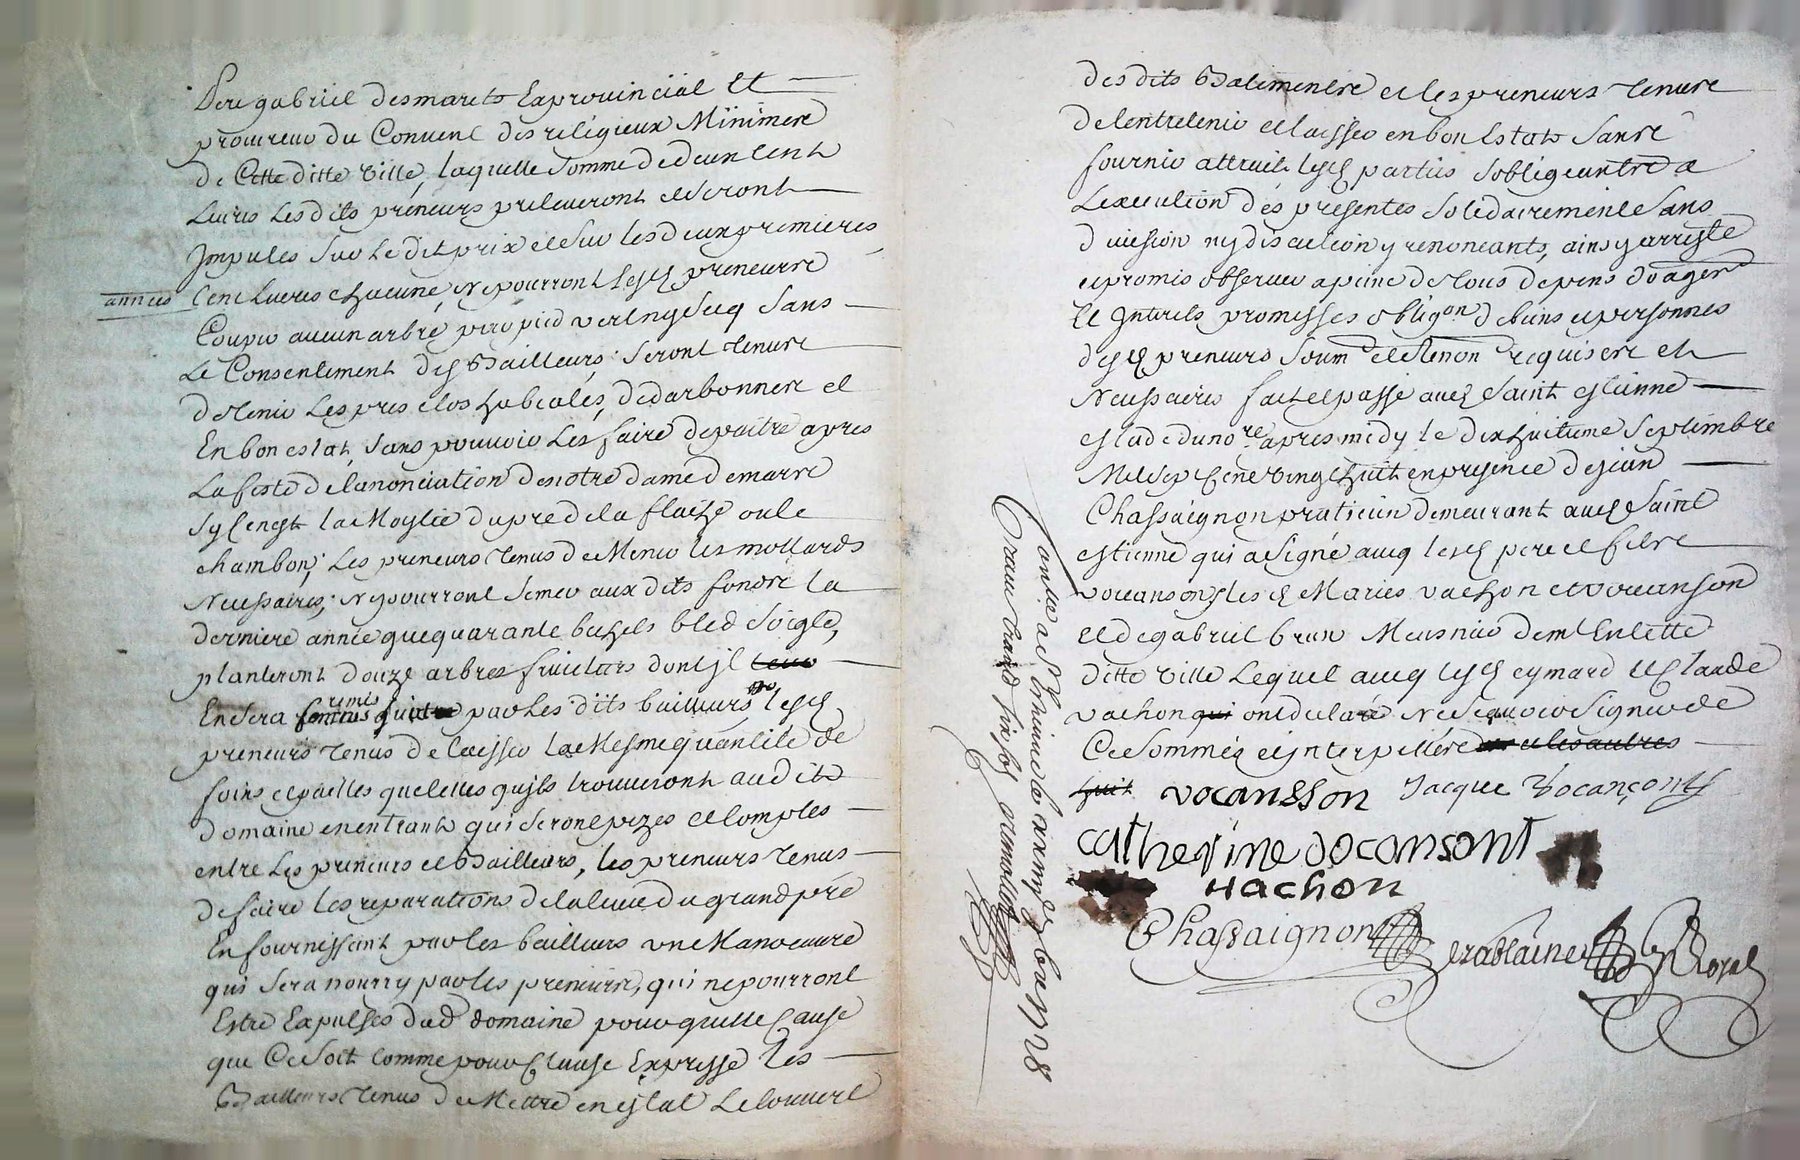 Pere gabriel desmarets Exprouincial Et
procureur du Conuent des religieux Minimes
de Cette ditte Ville, laquelle somme de deux Cent
Liures Lesdits preneurs preleueront et seront
Imputés sur Ledit prix et sur les deux premieres
années
Cent Liures chacune, Ne pourront lesd preneurs
Couper aucun arbre par pied vert ny secq sans
Le Consentement desd Bailleurs, seront tenus
de tenir Les prés clos de
En bon estat, sans pouuoir Les faire depaitre apres
La feste de lanonciation de notre dame de mars
Sy Cenest la Moytié du pré de la flache ou le
chambon, Les preneurs tenus de Mener les mollards
Necessaires, Ny pourront semer aux dits fonds la
derniere année que quarante bichets bled Seigle,
planteront douze arbres fruictiers dont jl
En sera remis par Les dits bailleurs lesd
preneurs tenus de laisser La Mesme quantité de
foins et pailles quelettes qujls trouueront audit
domaine en entrant qui seront pezes et Comptes
entre Les preneurs et Bailleurs, les preneurs tenus
de faire Les reparations de la leuée du grand pré
En fournissant par les bailleurs vne Manoeuure
qui sera nourry par les preneurs, qui ne pourront
Estre Expulsés dud domaine pour quelle Cause
que Ce soit Comme pour Clause Expresse Les
Bailleurs tenus de Mettre en estat Le Couuert
des dits Batiments et les preneurs tenus
de lentretenir et laisser en bon Estat sans
fournir attrait lesd parties sobligeants a
Lexecution des presentes solidairement Sans
diuision ny discution y renonceants, ainsy arresté
et promis obseruer a peine de tous depens domages
Et Interets promesses obligon de biens et personnes
desd preneurs soum et renon requises et
Necessaires fait et passé aud Saint estienne
estude du nore apres midy le dixhuitieme Septembre
Mil sept Cent Vingt huit en presence de jean
Chassaignon praticien demeurant aud Saint
estienne qui a signé aueq lesd pere et fils
vocanson, lesd Maries vachon et vocanson
et de gabriel brun Meusnier demt En Cette
ditte Ville Lequel aueq lesd eymard et Claude
vachon qui ont declaré Ne sçauoir signer de
Ce sommés et jnterpellés et les autres
vocansson Jacque Vocançont
catherine vocansont
vachon
Chassaignon